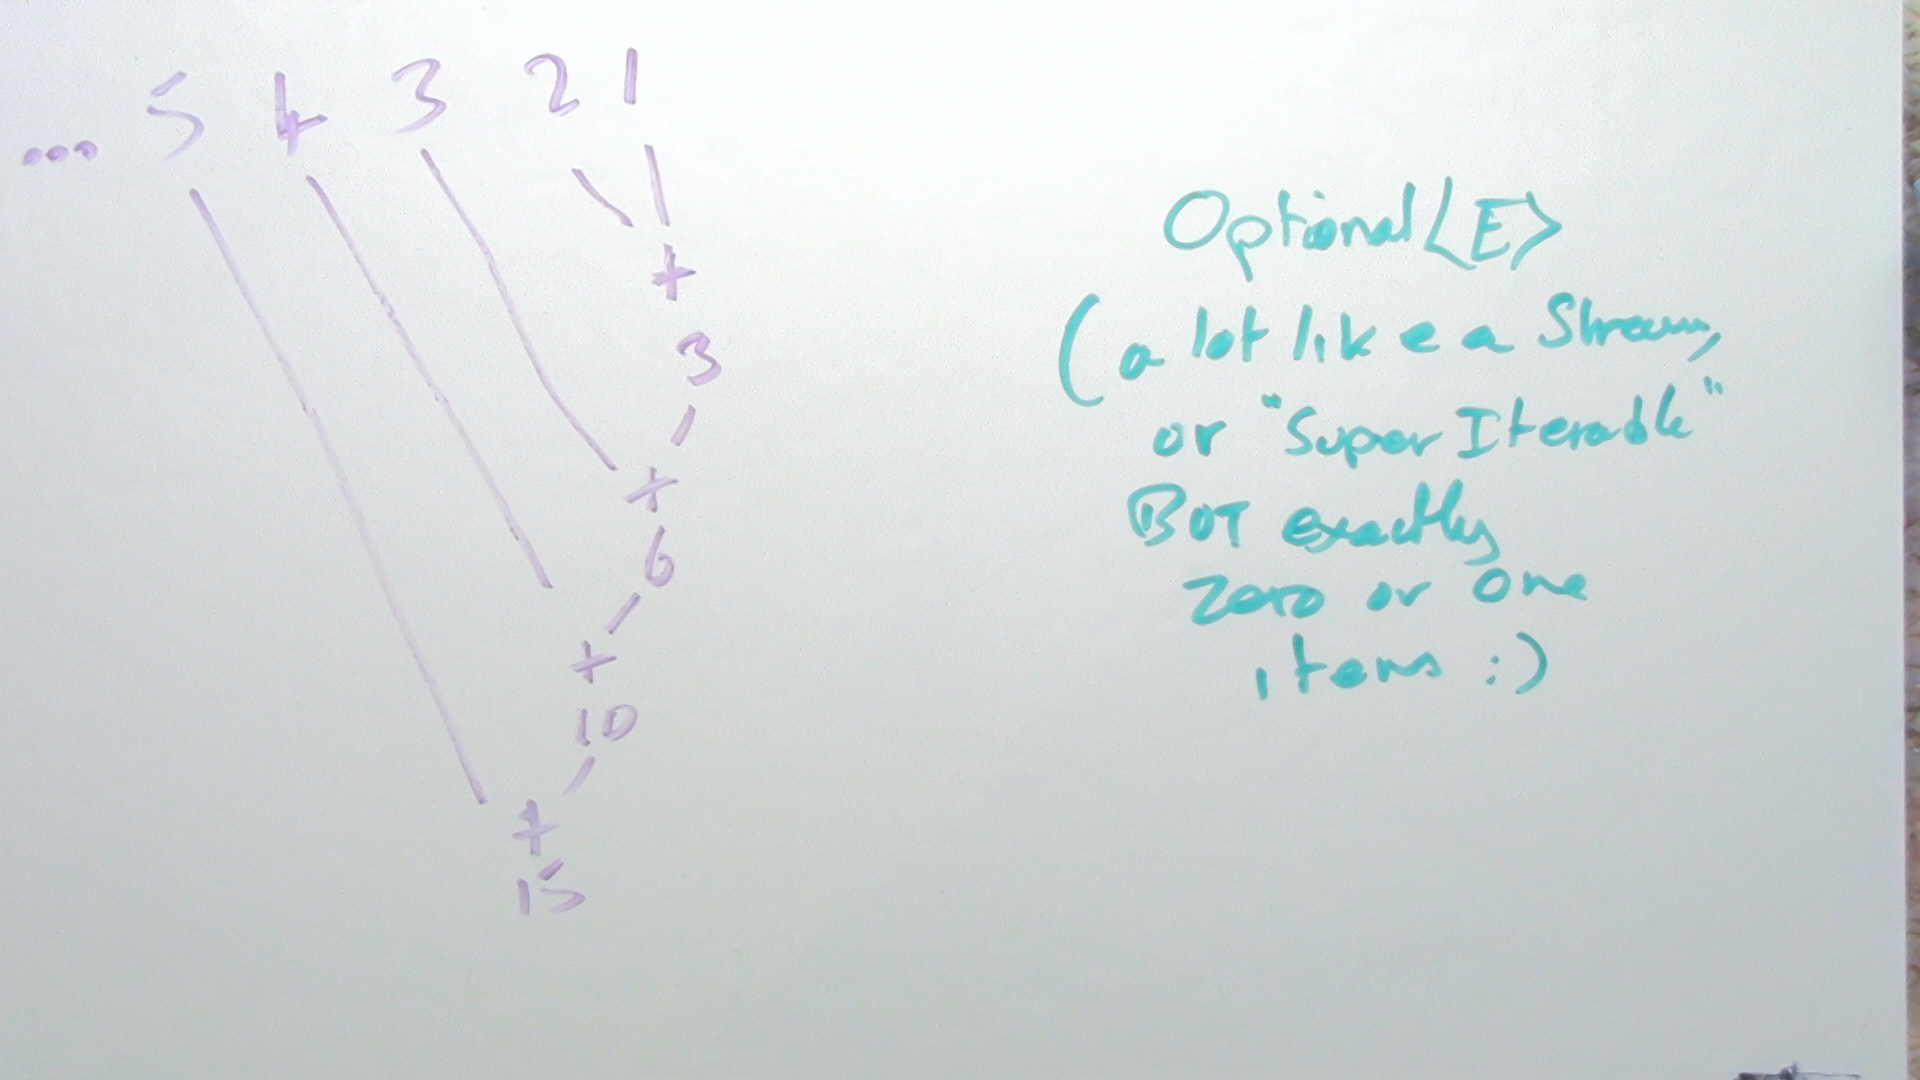 ... 5 4 3 2 1
+
3
+
6
+
10
+
15
Optional<E>
(a lot like a Stream,
or "SuperIterable"
BUT exactly
zero or one
items :)